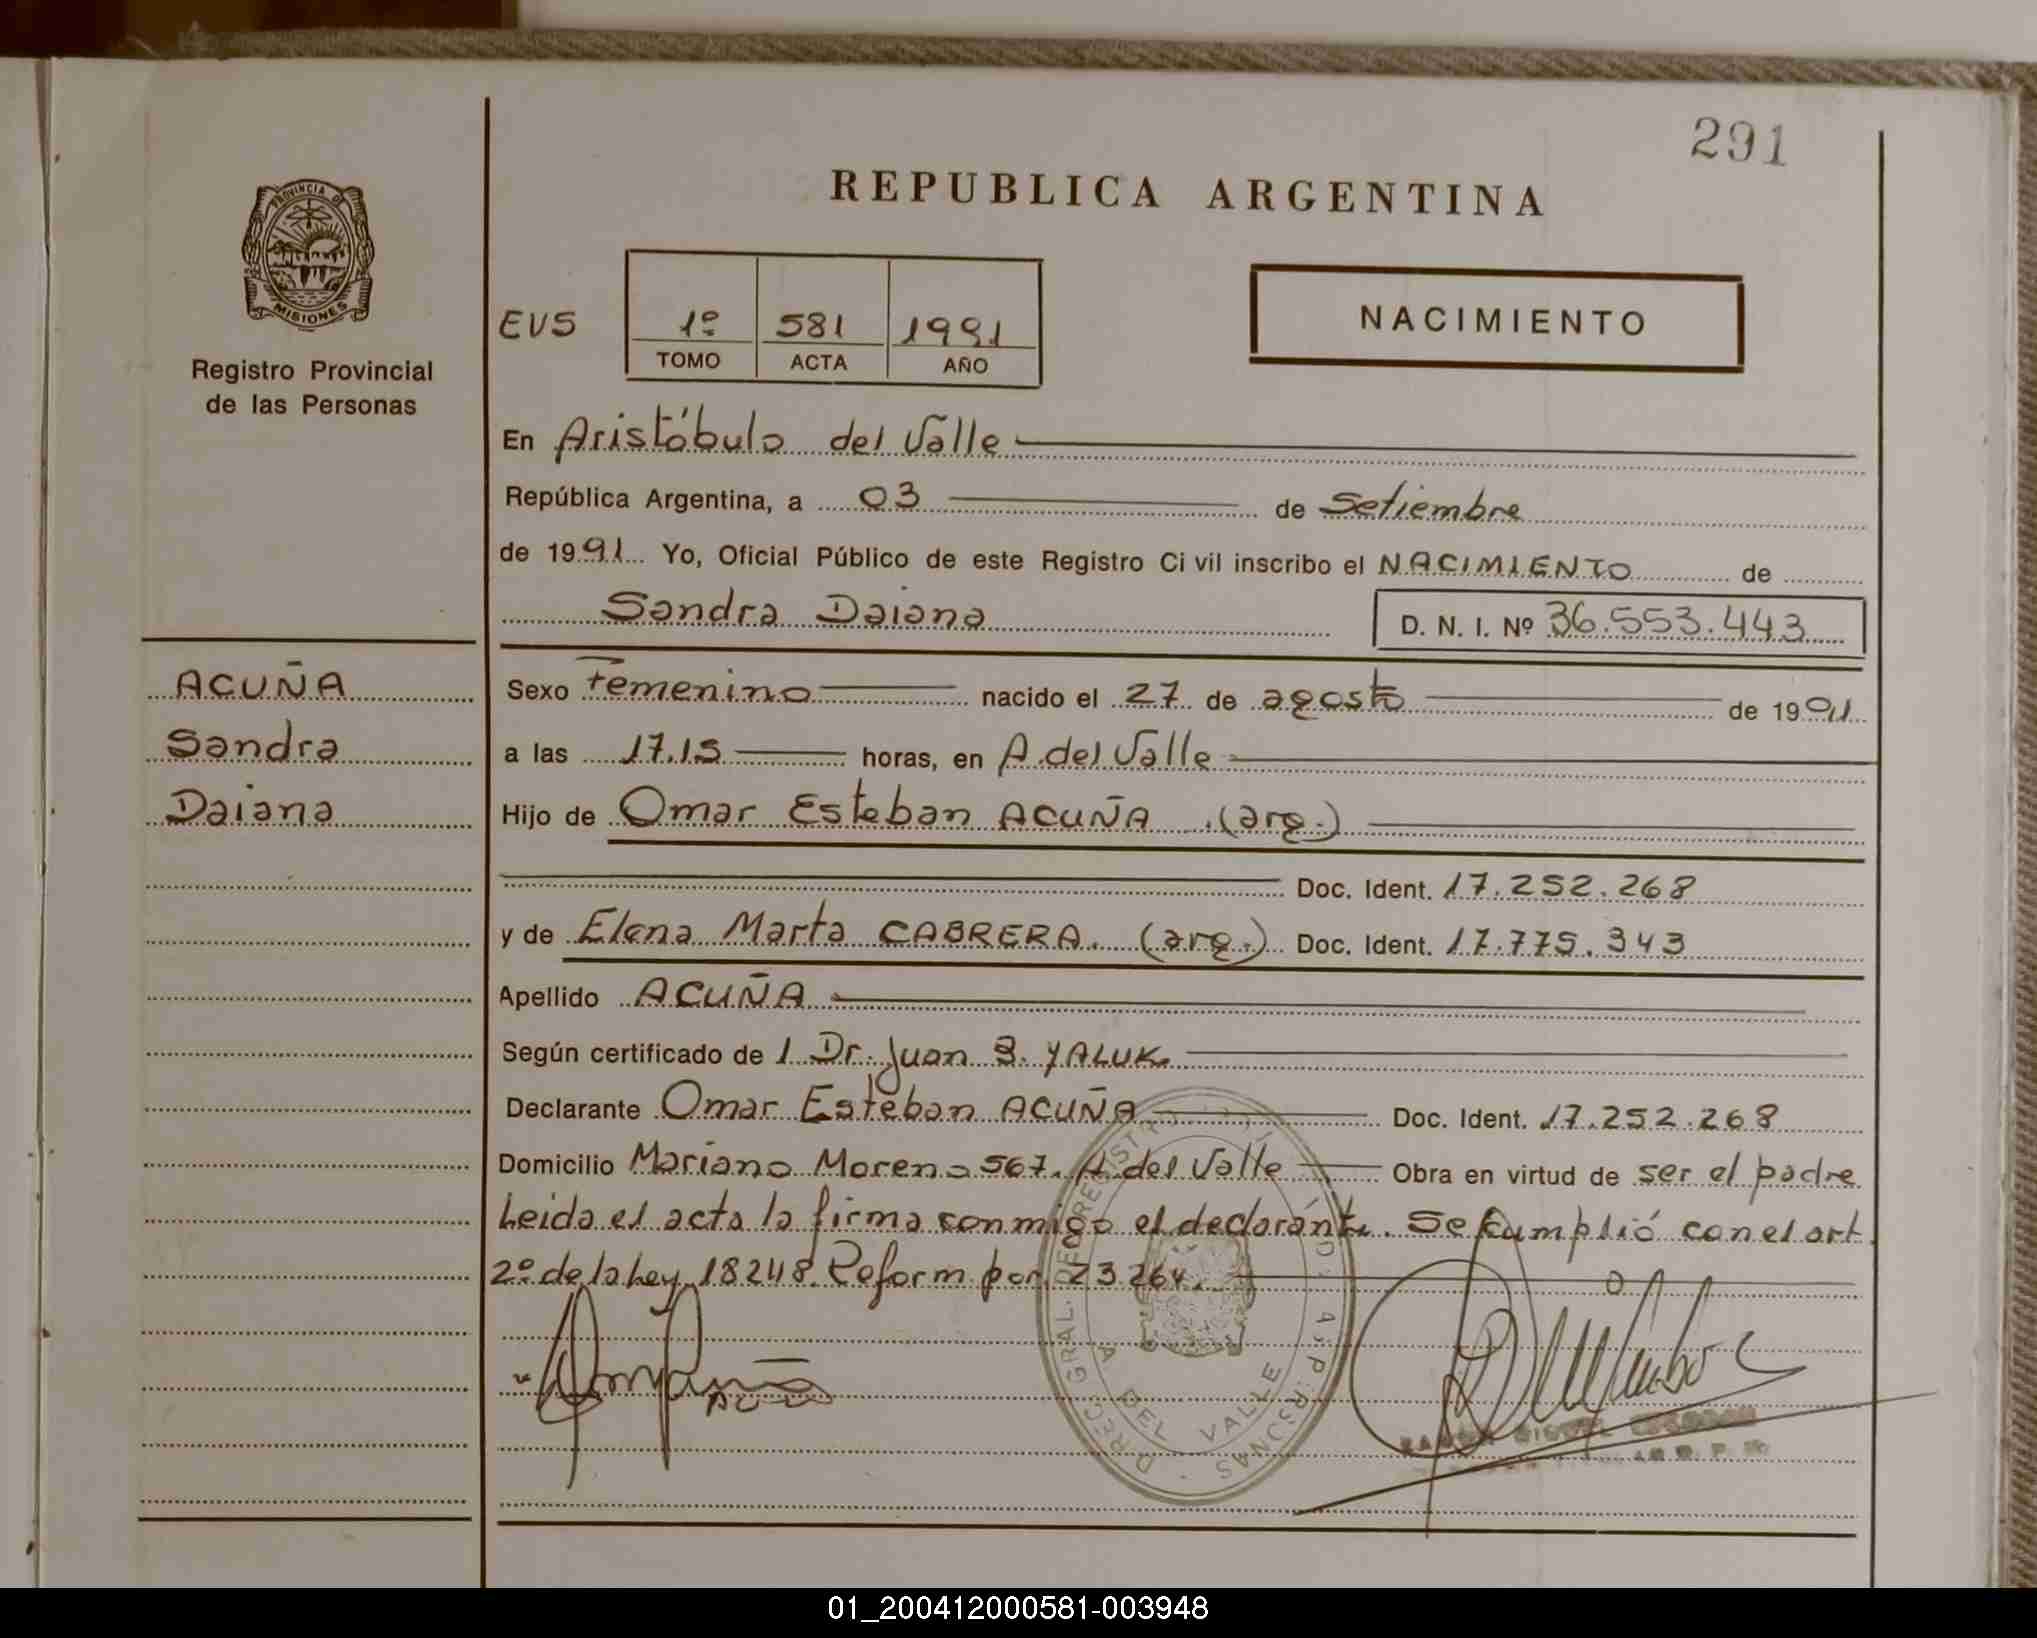 291
REPUBLICA ARGENTINA
PROVINCIA DE
MISIONES
Registro Provincial
de las Personas
EVS
1º 581 1991
TOMO ACTA AÑO
NACIMIENTO
En Aristóbulo del Valle
República Argentina, a 03 de Setiembre
de 1991 Yo, Oficial Público de este Registro Civil inscribo el NACIMIENTO de
Sandra Daiana D. N. I. Nº 36.553.443
ACUÑA
Sandra
Daiana
Sexo Femenino nacido el 27 de agosto de 1991
a las 17.15 horas, en A. del Valle
Hijo de Omar Esteban ACUÑA (arg.)
Doc. Ident. 17.252.268
y de Elena Marta CABRERA. (arg.) Doc. Ident. 17.775.343
Apellido ACUÑA
Según certificado de l Dr. Juan B. YALUK.
Declarante Omar Esteban ACUÑA Doc. Ident. 17.252.268
Domicilio Mariano Moreno 567. A. del Valle Obra en virtud de ser el padre
Leida el acta la firma conmigo el declarante. Se cumplió con el art
2º de la Ley 18248 Reform por 23.264.
A DEL VALLE
01_200412000581-003948